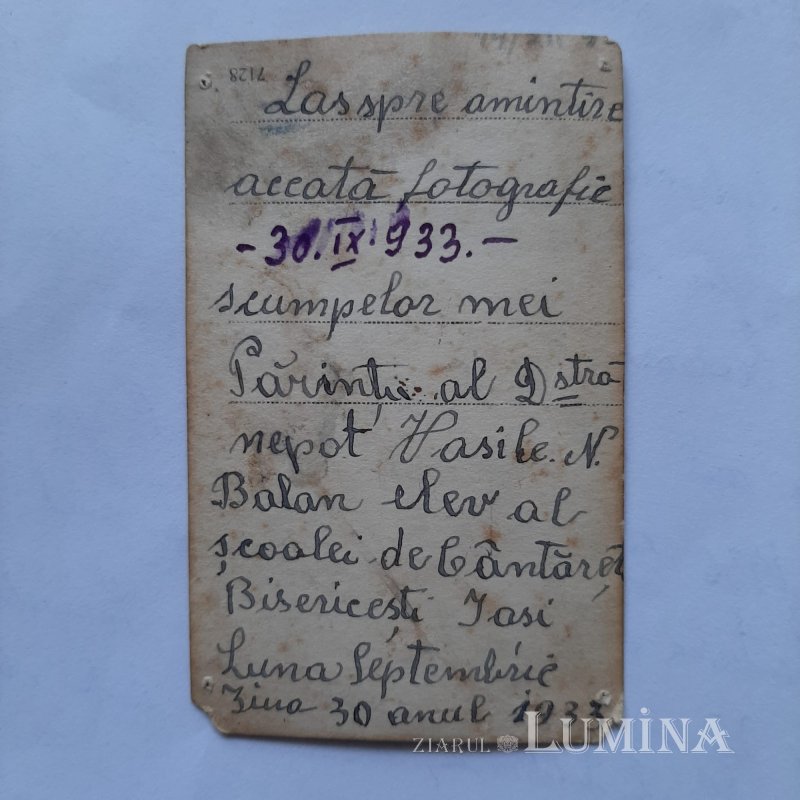 7128
Las spre amintire
accată fotografie
-30.IX.933.-
scumpelor mei
Părinții al Dstră
nepot Vasile. N.
Balan elev al
școalei de Cântăreț
Bisericești Iasi
Luna Septembrie
Ziua 30 anul 1933
ZIARUL LUMINA